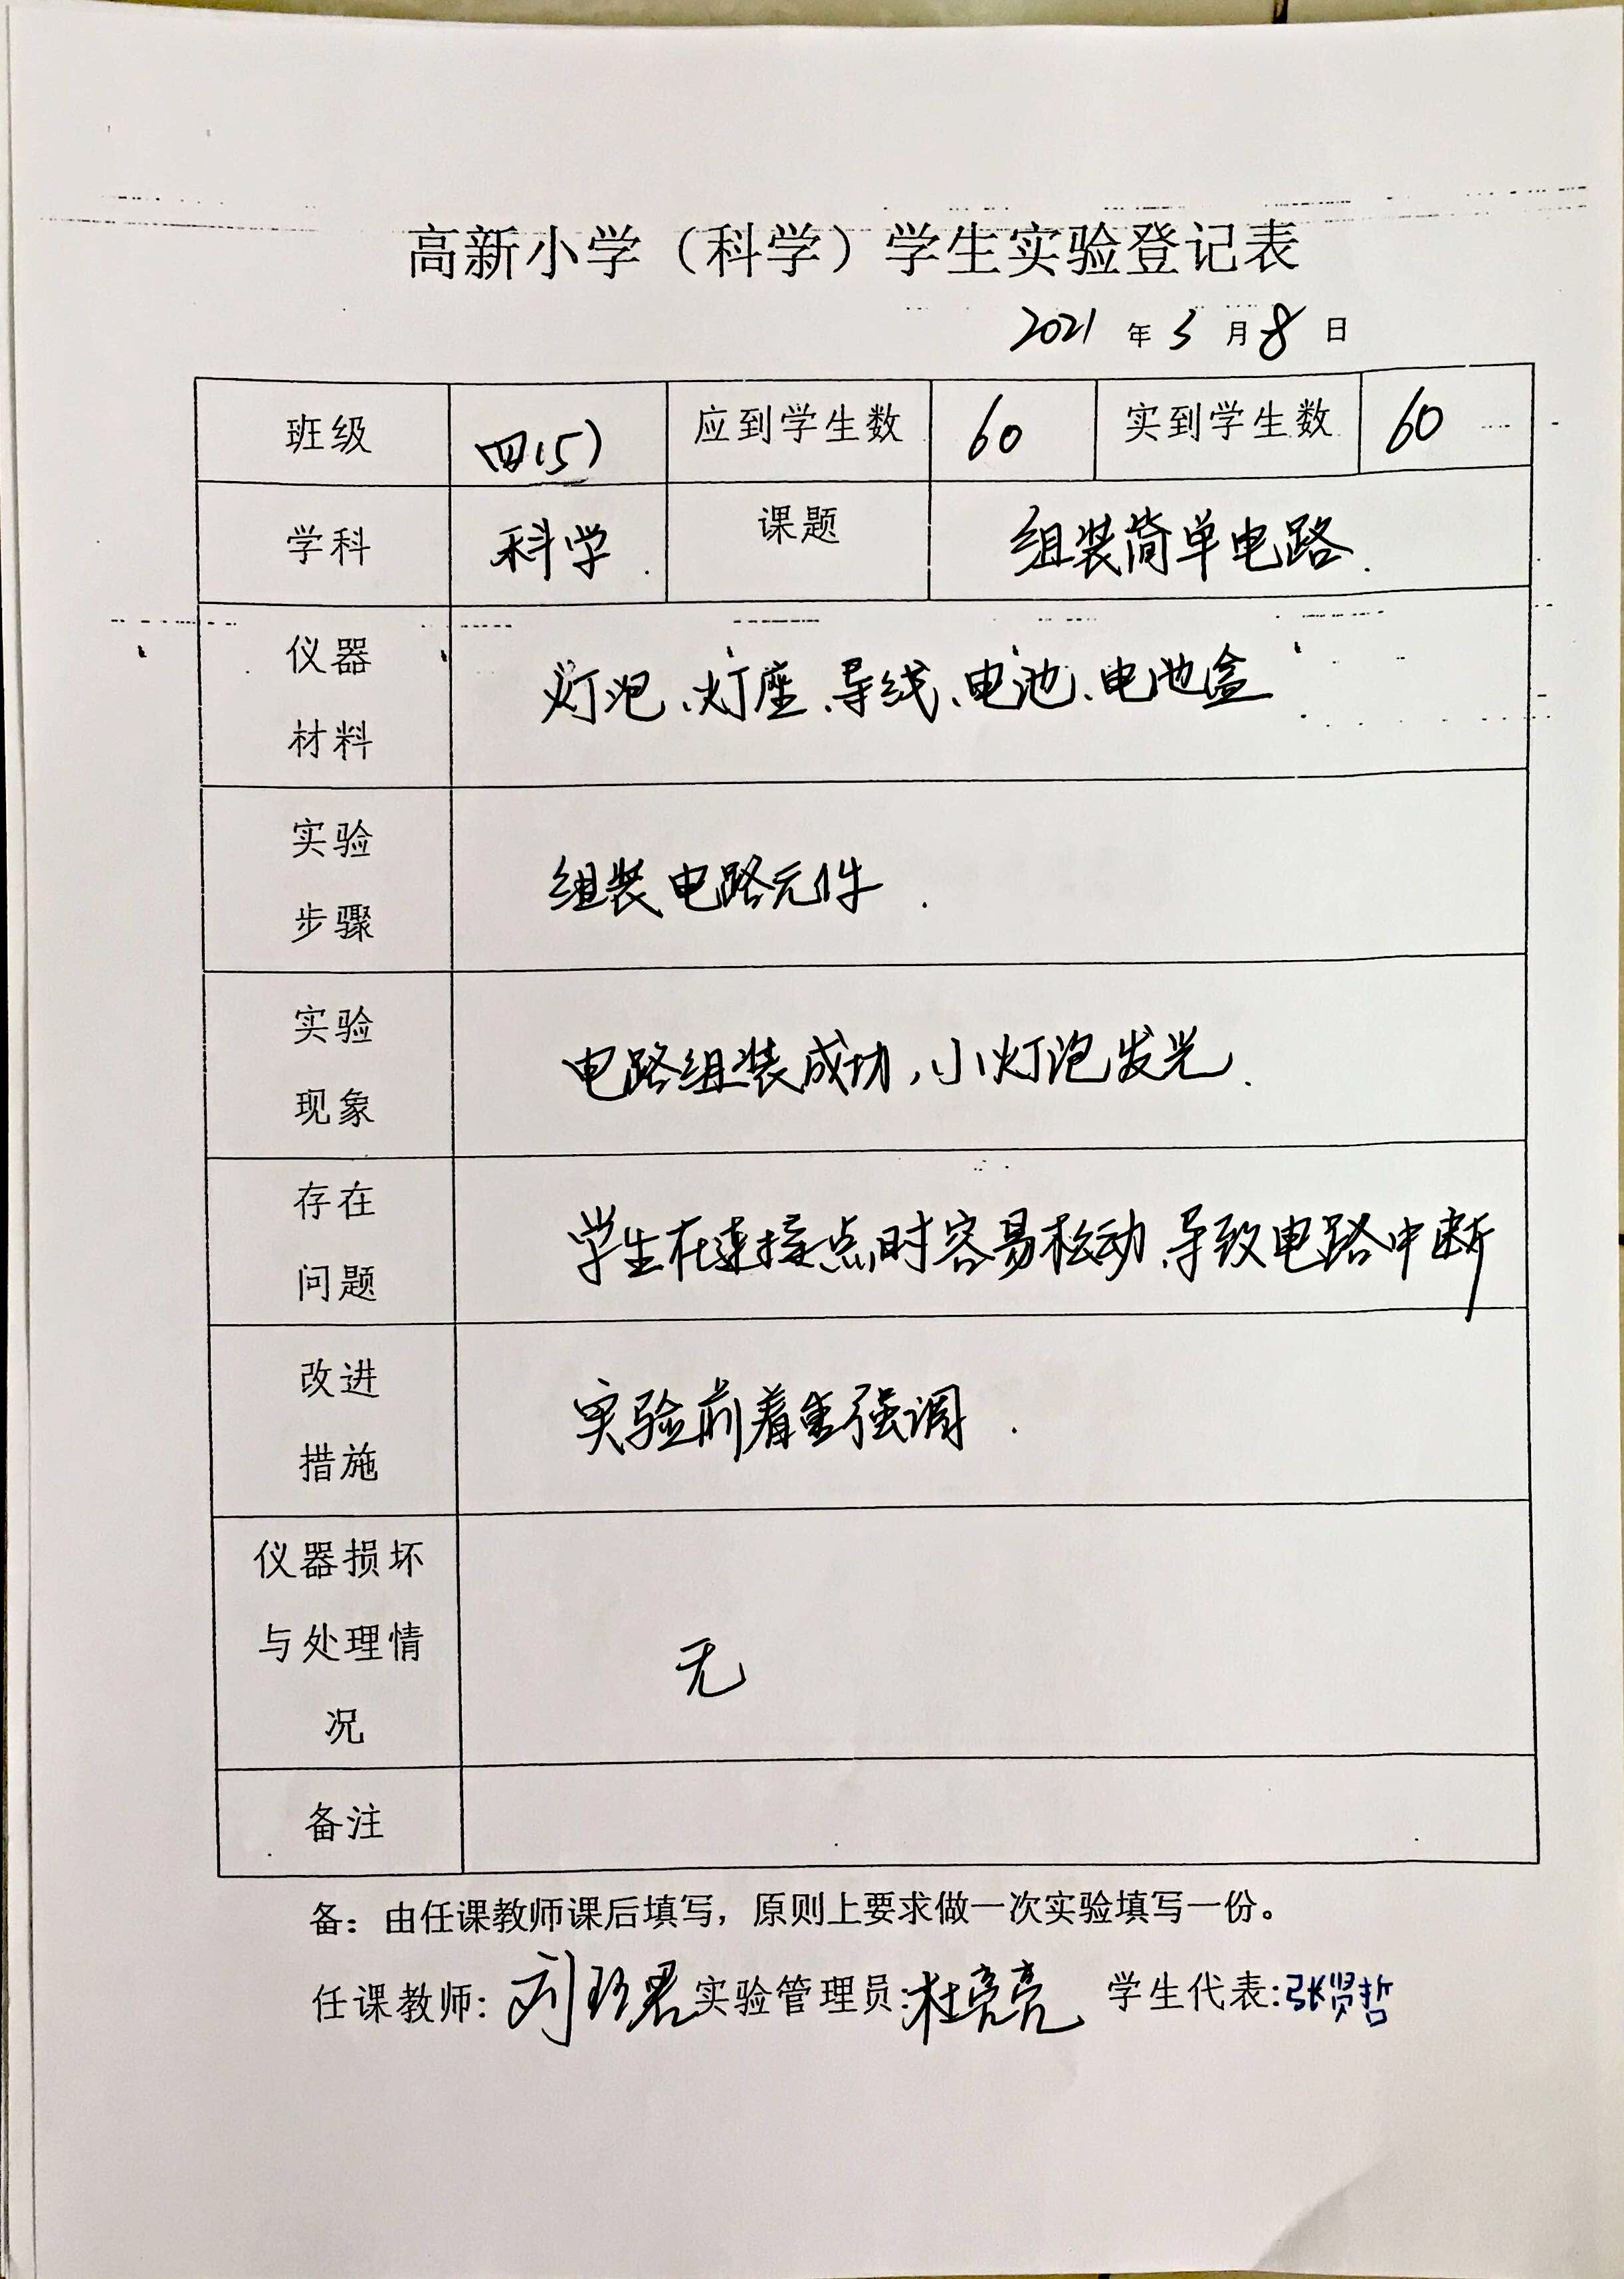 高新小学（科学）学生实验登记表
2021 年 3 月 8 日
班级 四(5) 应到学生数 60 实到学生数 60
学科 科学 课题 组装简单电路.
仪器
材料
灯泡、灯座、导线、电池、电池盒
实验
步骤
组装电路元件.
实验
现象
电路组装成功,小灯泡发光.
存在
问题
学生在连接点时容易松动、导致电路中断
改进
措施
实验前着重强调.
仪器损坏
与处理情
况
无
备注
备：由任课教师课后填写，原则上要求做一次实验填写一份。
任课教师: 刘君 实验管理员: 杜亮亮 学生代表: 张贤哲